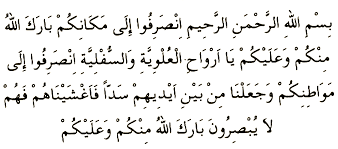 بِسْمِ اللهِ الرَّحْمَنِ الرَّحِيمِ اِنْصَرِفُوا إِلَى مَكَانِكُمْ بَارَكَ اللهُ
مِنْكُمْ وَعَلَيْكُمْ يَا اَرْوَاحِ الْعُلْوِيَّةِ وَالسُّفْلِيَّةِ اِنْصَرِفُوا إِلَى
مَوَاطِنِكُمْ وَجَعَلْنَا مِنْ بَيْنِ اَيْدِيهِمْ سَدّاً فَاَغْشَيْنَاهُمْ فَهُمْ
لاَ يُبْصِرُونَ بَارَكَ اللهُ مِنْكُمْ وَعَلَيْكُمْ